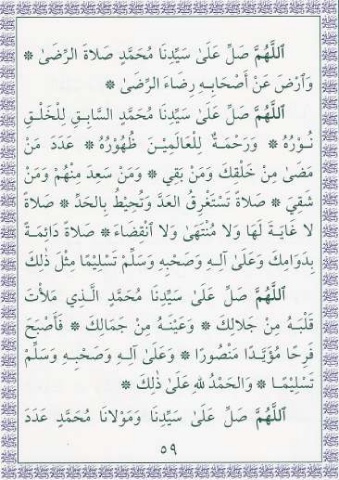 اَللَّهُمَّ صَلِّ عَلَىٰ سَيِّدِنَا مُحَمَّدٍ صَلَاةَ الرِّضَىٰ *
وَٱرْضَ عَنْ أَصْحَابِهِ رِضَاءَ الرِّضَىٰ *
اَللَّهُمَّ صَلِّ عَلَىٰ سَيِّدِنَا مُحَمَّدٍ السَّابِقِ لِلْخَلْقِ
نُورُهُ * وَرَحْمَةٌ لِلْعَالَمِيْنَ ظُهُورُهُ * عَدَدَ مَنْ
مَضَىٰ مِنْ خَلْقِكَ وَمَنْ بَقِيَ * وَمَنْ سَعِدَ مِنْهُمْ وَمَنْ
شَقِيَ * صَلَاةً تَسْتَغْرِقُ العَدَّ وَتُحِيْطُ بِالحَدِّ * صَلَاةً
لَا غَايَةَ لَهَا وَلَا مُنْتَهَىٰ وَلَا ٱنْقِضَاءَ * صَلَاةً دَائِمَةً
بِدَوَامِكَ وَعَلَىٰ آلِهِ وَصَحْبِهِ وَسَلِّمْ تَسْلِيْمًا مِثْلَ ذٰلِكَ
اَللَّهُمَّ صَلِّ عَلَىٰ سَيِّدِنَا مُحَمَّدٍ الَّذِي مَلَأْتَ
قَلْبَهُ مِنْ جَلَالِكَ * وَعَيْنَهُ مِنْ جَمَالِكَ * فَأَصْبَحَ
فَرِحًا مُؤَيَّدًا مَنْصُورًا * وَعَلَىٰ آلِهِ وَصَحْبِهِ وَسَلِّمْ
تَسْلِيْمًا * وَالْحَمْدُ لِلهِ عَلَىٰ ذٰلِكَ *
اَللَّهُمَّ صَلِّ عَلَىٰ سَيِّدِنَا وَمَوْلَانَا مُحَمَّدٍ عَدَدَ
٥٩